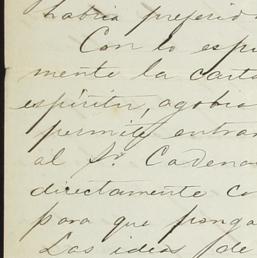 habria preferido
Con lo espu
mente la carta
espíritu, agobia
permite entrar
al Sr. Cadena
directamente co
para que ponga
Las ideas de